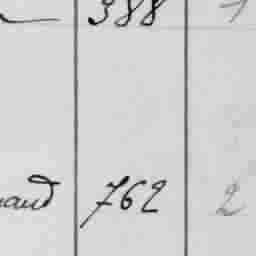 388 1
aud 762 2